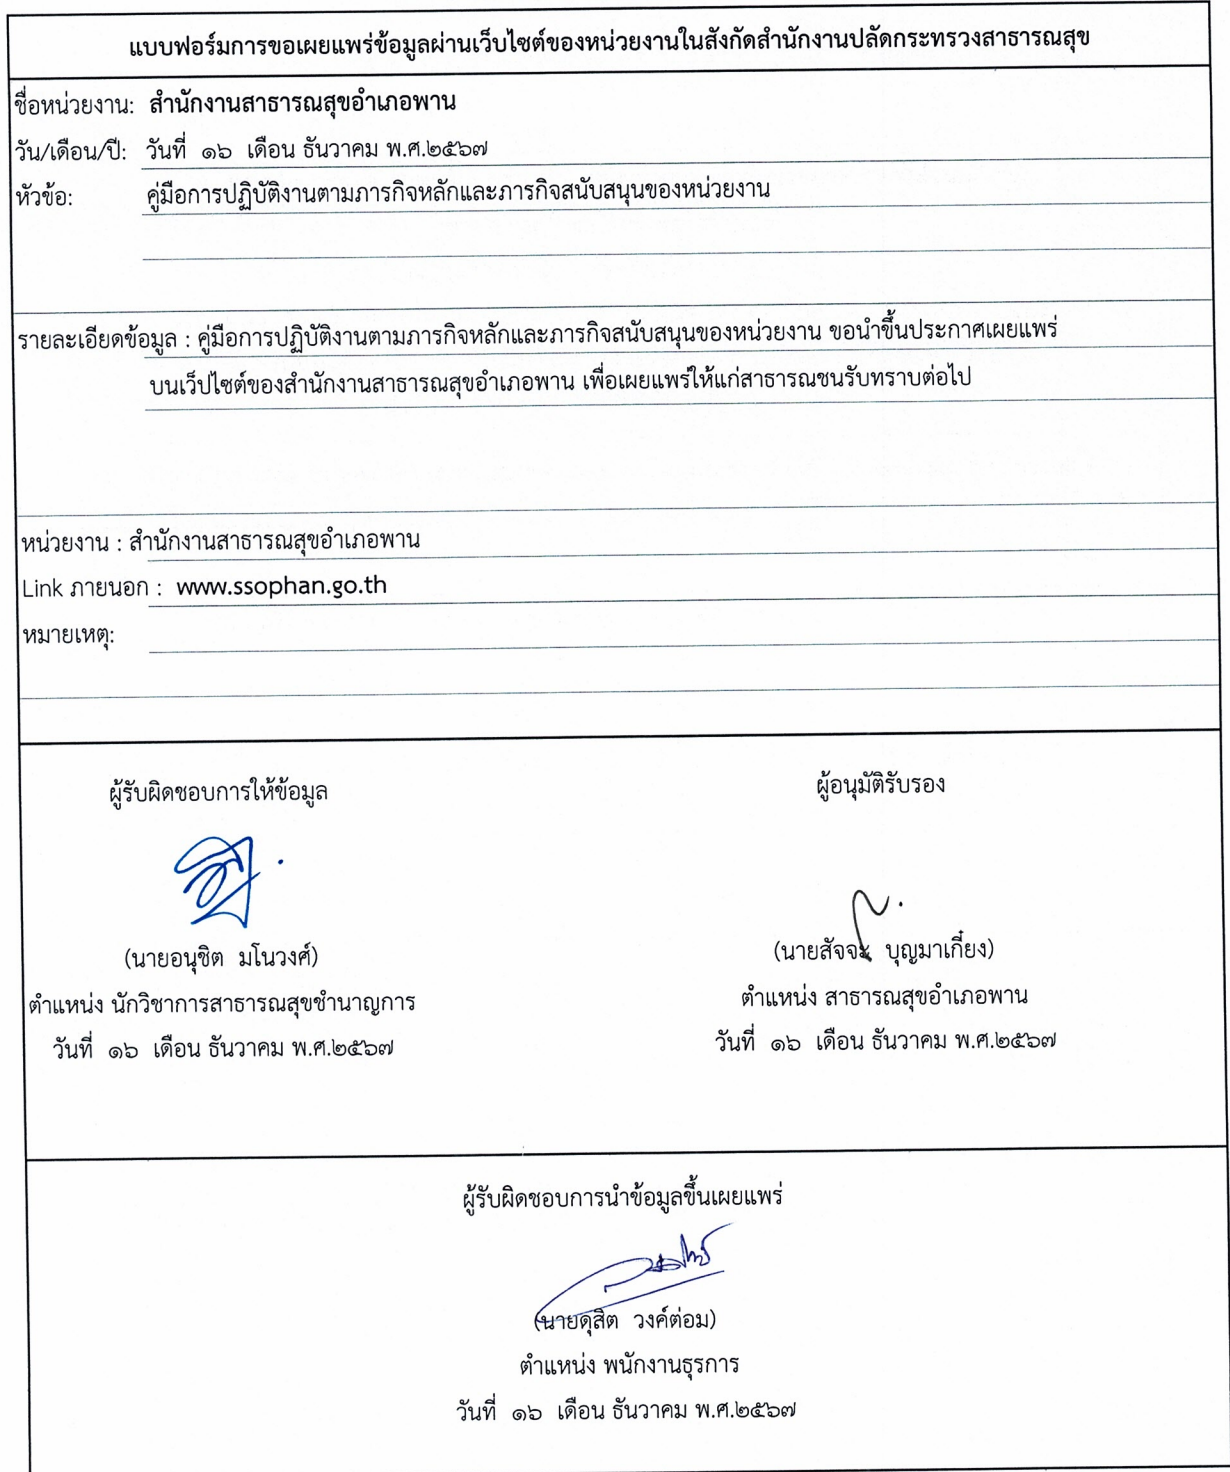 แบบฟอร์มการขอเผยแพร่ข้อมูลผ่านเว็บไซต์ของหน่วยงานในสังกัดสำนักงานปลัดกระทรวงสาธารณสุข
ชื่อหน่วยงาน: สำนักงานสาธารณสุขอำเภอพาน
วัน/เดือน/ปี: วันที่ ๑๖ เดือน ธันวาคม พ.ศ.๒๕๖๗
หัวข้อ: คู่มือการปฏิบัติงานตามภารกิจหลักและภารกิจสนับสนุนของหน่วยงาน
รายละเอียดข้อมูล : คู่มือการปฏิบัติงานตามภารกิจหลักและภารกิจสนับสนุนของหน่วยงาน ขอนำขึ้นประกาศเผยแพร่
บนเว็ปไซต์ของสำนักงานสาธารณสุขอำเภอพาน เพื่อเผยแพร่ให้แก่สาธารณชนรับทราบต่อไป
หน่วยงาน : สำนักงานสาธารณสุขอำเภอพาน
Link ภายนอก : www.ssophan.go.th
หมายเหตุ:
ผู้รับผิดชอบการให้ข้อมูล
(นายอนุชิต มโนวงศ์)
ตำแหน่ง นักวิชาการสาธารณสุขชำนาญการ
วันที่ ๑๖ เดือน ธันวาคม พ.ศ.๒๕๖๗
ผู้อนุมัติรับรอง
(นายสัจจะ บุญมาเกี๋ยง)
ตำแหน่ง สาธารณสุขอำเภอพาน
วันที่ ๑๖ เดือน ธันวาคม พ.ศ.๒๕๖๗
ผู้รับผิดชอบการนำข้อมูลขึ้นเผยแพร่
(นายดุสิต วงค์ต่อม)
ตำแหน่ง พนักงานธุรการ
วันที่ ๑๖ เดือน ธันวาคม พ.ศ.๒๕๖๗